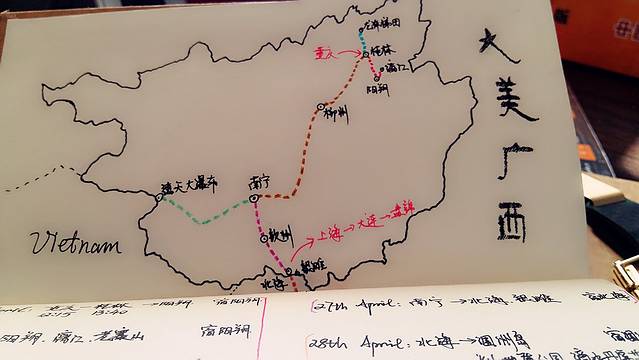 大美广西
龙脊梯田
重庆
桂林
漓江
阳朔
柳州
德天大瀑布
南宁
钦州
上海→大连→盘锦
银滩
北海
Vietnam
桂林→阳朔 宿阳朔
12:15 13:40
阳朔、漓江、老寨山 宿阳朔
27th April: 南宁→北海、银滩
28th April: 北海→涠洲岛